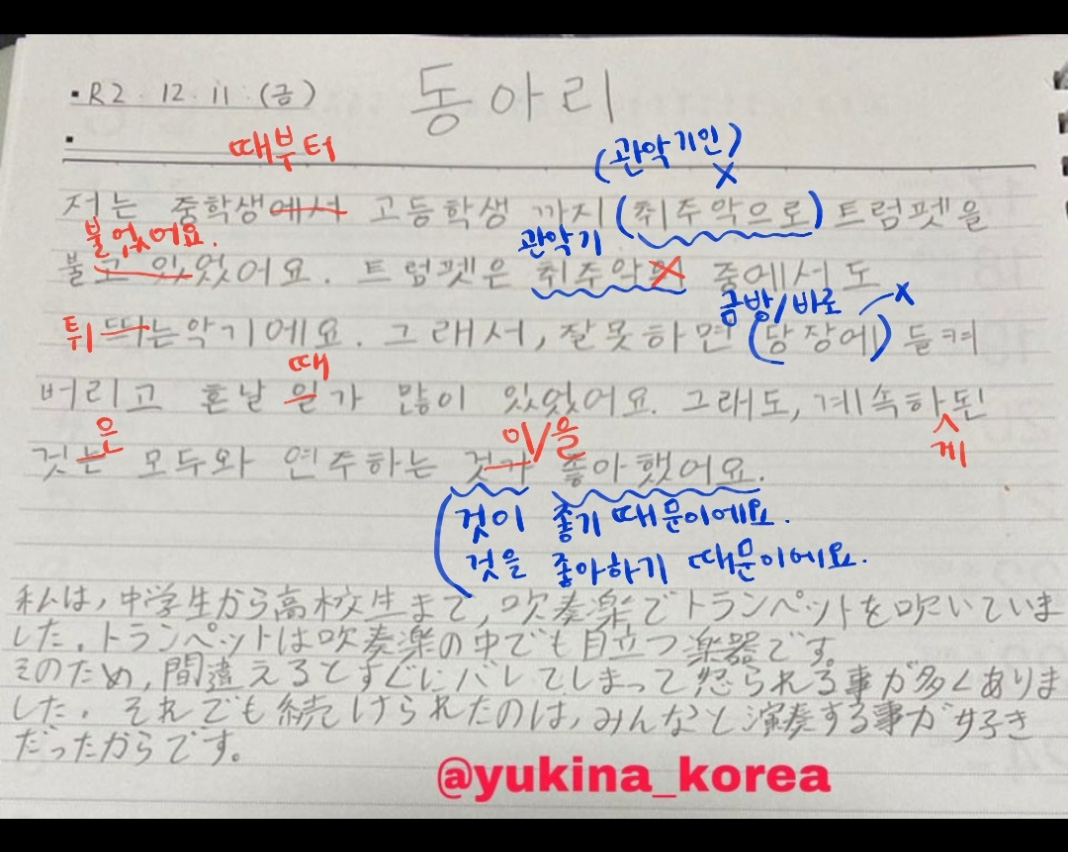 ・R2・12・11・(금) 동아리
・
때부터 (관악기인) X
저는 중학생에서 고등학생 까지 (취주악으로) 트럼펫을
불었어요. 관악기
불고 있었어요. 트럼펫은 취주악의 중에서도
금방/바로 X
튀 띄는악기에요. 그래서, 잘못하면 (당장에) 들켜
때
버리고 혼날 일가 많이 있었어요. 그래도, 계속하된
은 이/을 게
것는 모두와 연주하는 것가 좋아했어요.
것이 좋기 때문이에요.
것을 좋아하기 때문이에요.
私は,中学生から高校生まで,吹奏楽でトランペットを吹いていま
した.トランペットは吹奏楽の中でも目立つ楽器です。
そのため,間違えるとすぐにバレてしまって怒られる事が多くありま
した.それでも続けられたのは,みんなと演奏する事が好き
だったからです。
@yukina_korea